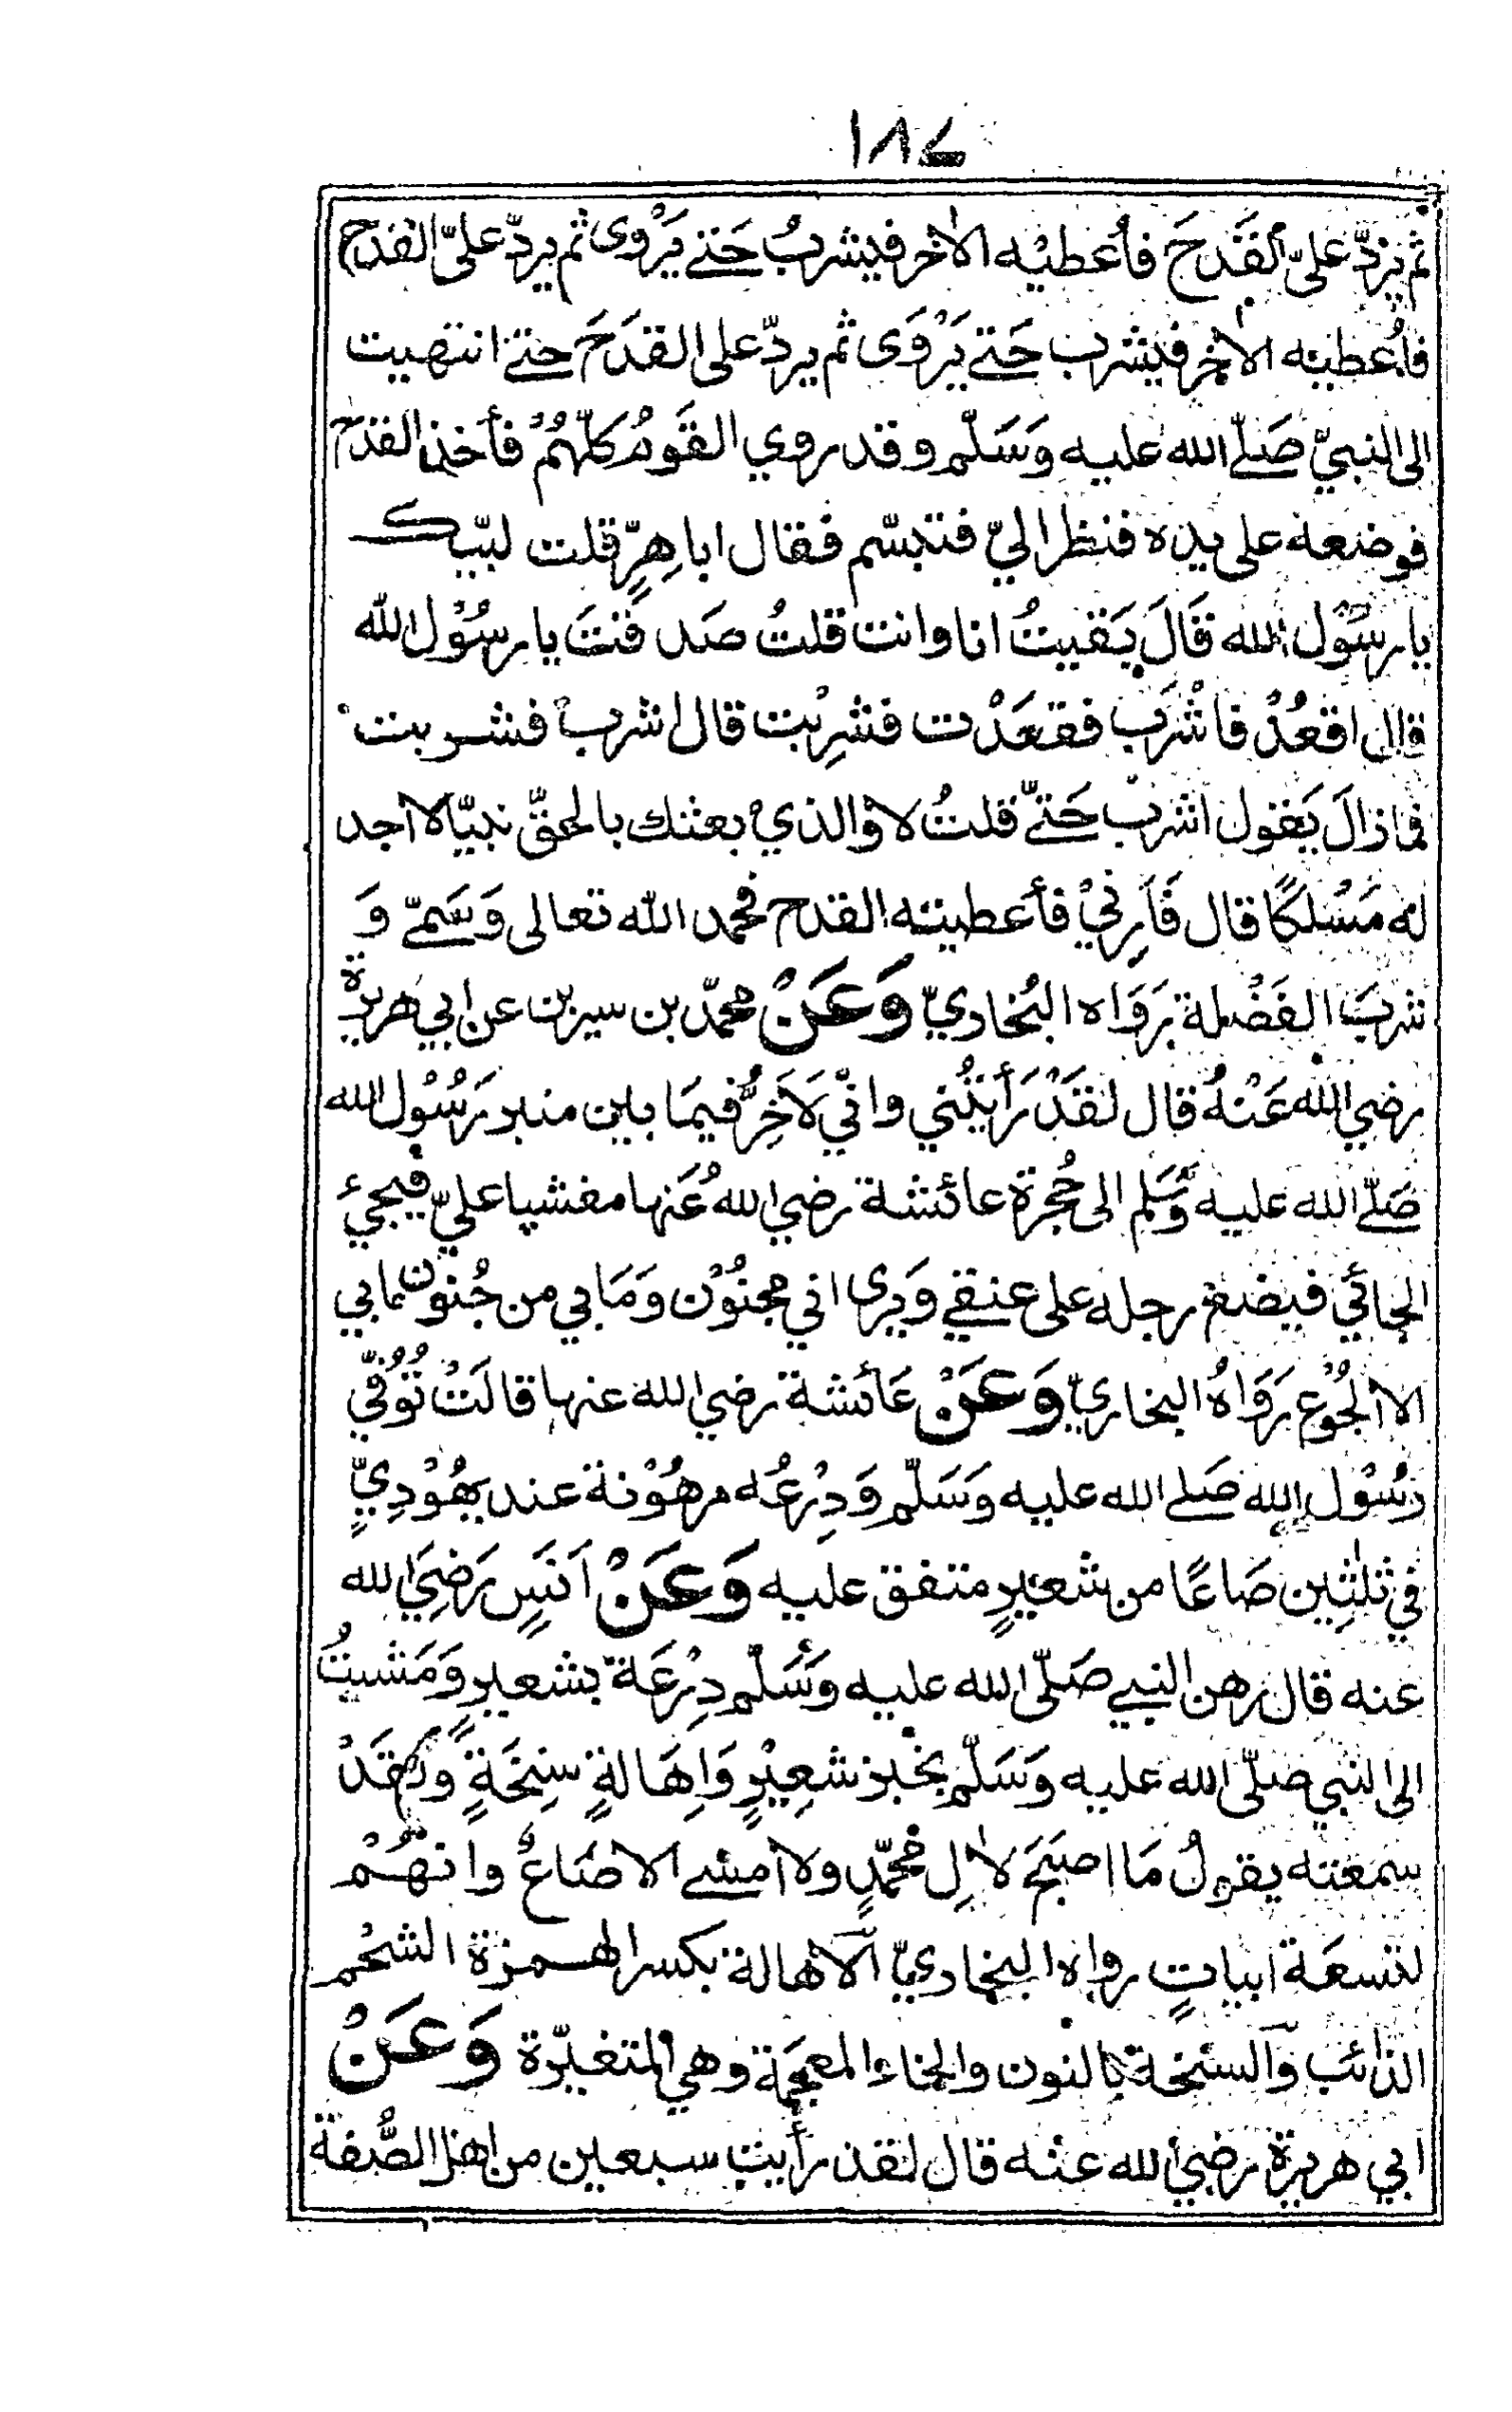 ١٨٤
ثم يردّ عليّ القَدحَ فأعطيْه الاٰخر فيشربُ حَتے يَرْوى ثم يردّ عليّ القدح
فاُعطيته الاٰخر فيشرب حَتے يَرْوَى ثم يردّ على القدَحَ حتے انتهيت
الى النبيّ صَلّے الله عليه وَسَلّم وقد روي القَومُ كلّهُمْ فأخذ القدَح
فوضعه على يده فنظر اليّ فتبسّم فقال اباهِرٍّ قلت لبّيك
يا رسُوْل الله قَالَ بَقيتُ انا وانت قلتُ صَدقتَ يا رسُوْل الله
قال اقعُدْ فاشْرَب فقعَدْت فشرِبْت قال اشربْ فشربت
فمازالَ يَقول اشربْ حَتّے قلتُ لا والذيْ بعثك بالحقّ نبيّا لا اجد
له مَسْلكًا قال فَأرِنيْ فأعطيته القدح فحمد الله تعالى وَسَمّے وَ
شربَ الفَضْلة رَوَاه البُخاريّ وَعَنْ محمّد بن سيرين عن ابي هريرة
رضي الله عَنْهُ قال لقَدْ رَأيْتُني وانّي لَاَخِرُّ فيمَا بين منبر رَسُوْل الله
صَلّے الله عليه وَسَلم الى حُجرة عائشة رضي اللهُ عَنها مغشيا عليّ فيجيء
الجائي فيضع رجله على عنقے وَيرى اني مجنُوْن وَمَا بي من جُنون ما بي
الا الجُوْع رَوَاهُ البخاريّ وَعَنْ عَائشة رضي الله عنها قالَتْ تُوُفّي
رسُوْل الله صَلے الله عليه وَسَلّم وَدِرْعُه مرهُوْنة عند يهُوْدِيٍّ
في ثلٰثِين صَاعًا من شعيرٍ متفق عليه وَعَنْ اَنَسٍ رَضِيَ الله
عنه قال رهن النبي صَلّى الله عليه وَسَلّم دِرْعَهٗ بشعيرٍ وَمَشيتُ
الى النبي صَلّى الله عليه وَسَلّم بخبز شعِيْرٍ وَاِهَالةٍ سنِخَةٍ ولقَدْ
سمعته يقولُ مَا اصبَحَ لاٰلِ محمّدٍ ولا امسے الا صَاعٌ وانهُمْ
لتسعَة ابياتٍ رواه البخاريّ الاهالة بكسر الهمزة الشحْم
الذائب وَالسنِخة بالنون والخاء المعجَمة وهي المتغيّرة وَعَنْ
ابي هريرة رضي الله عنه قال لقد رأيت سبعين من اهل الصُّفة